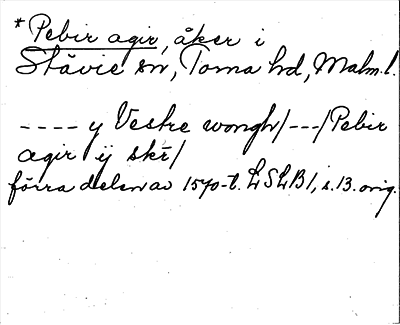 * Pebir agir, åker i
Stävie sn, Torna hd, Malm.l.
---- y Vestre wongh/---/Pebir
agir ij skr̄/
förra delen av 1570-t. LSLB1, s.13. orig.